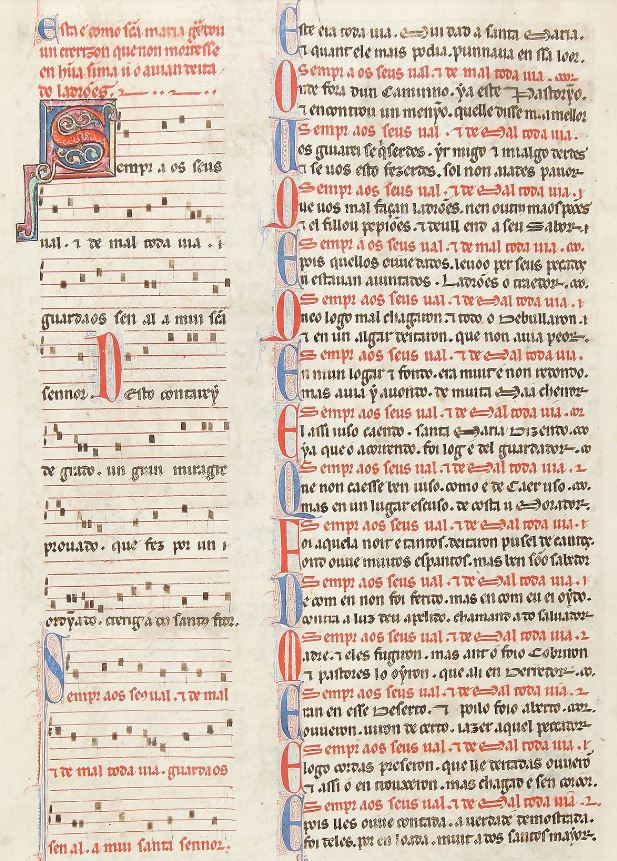 Esta e como sc̃a maria g̃rdou
un crerizon que non morresse
en hũa sima u o auian deita
do ladrões.
Sempr a os seus
ual. ⁊ de mal toda uia. ⁊
guardaos sen al a mui sc̃a
sennor. Desto contarey
de grado. un gran miragre
prouado. que fez por un ⁊
ordỹado. crerig a do santo
Sempr aos seus ual. ⁊ de mal
⁊ de mal toda uia. guardaos
sen al. a mui santa sennor.
Este era toda uia. a santa Maria.
E quant ele mais podia. punnaua en ssa loor.
Sempr a os seus ual. ⁊ de mal toda uia.
Onde fora dun Caminno. ya este Pastorỹo.
⁊ encontrou un menỹo. quelle disse
Sempr a os seus ual. ⁊ de Mal toda uia.
Uos guardi se q̃serdes. yr migo ⁊
⁊ se uos esto fezerdes. sol non aiades pauor.
Sempr aos seus ual. ⁊ de Mal toda uia. ⁊
Que uos mal façan ladrões. nen outros maos
⁊ el fillou pepiões. ⁊ deull end a seu Sabor. ⁊
Sempr aos seus ual. ⁊ de Mal toda uia.
E pois quellos ouue dados. leuoo per seus pecados
u estauan aiuntados. Ladrões o traedor.
Sempr aos seus ual. ⁊ de Mal toda uia. ⁊
O neo logo mal chagaron ⁊ todo o Debullaron. ⁊
⁊ en un algar deitaron. que non auia peor.
Sempr aos seus ual. ⁊ de Mal toda uia.
En niun logar ⁊ fondo. era muit e non redondo.
mas auia ỹ auondo. de muita
Sempr aos seus ual. ⁊ de Mal toda uia.
El assi iuso caendo. santa Maria Dizendo.
ya que o acorrendo. foi log e del guardador.
Sempr aos seus ual. ⁊ de Mal toda uia. ⁊
Que non caesse ben iuso. como e de Caer uso.
mas en un lugar escuso. de costa u
Sempr aos seus ual. ⁊ de Mal toda uia. ⁊
Foi aquela noit e tantos. deitaron pusel de cantos
onde ouue muitos espantos. mas ben sõo sabedor
Sempr aos seus ual. ⁊ de Mal toda uia. ⁊
De com en non foi ferido. mas en com eu ei oỹdo.
contra a luz deu apelido. chamand a do saluador
Sempr aos seus ual. ⁊ de Mal toda uia. ⁊
Madre. ⁊ eles fugiron. mas ant o foio Cobriron
⁊ pastores lo oỹron. que ali en Derredor.
Sempr aos seus ual. ⁊ de Mal toda uia. ⁊
Eran en esse Deserto. ⁊ polo foio aberto.
ouueron. uiron de certo. iazer aquel pecador
Sempr aos seus ual. ⁊ de Mal toda uia. ⁊
E logo cordas preseron. que lle deitadas ouueron
⁊ assi o en trouxeron. mas chagad e sen coor.
Sempr aos seus ual. ⁊ de Mal toda uia. ⁊
E pois lles ouue contada. a uerdade demostrada.
foi deles. por en loada. muit a dos santos mayor.